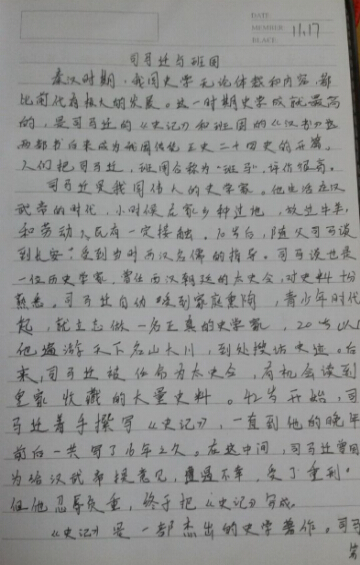 DATE
NUMBER 11.17
PLACE
司马迁与班固
秦汉时期，我国史学无论体裁和内容，都
比前代有极大的发展。这一时期史学成就最高
的，是司马迁的《史记》和班固的《汉书》。这
两部书后来成为我国传统正史二十四史的开篇。
人们把司马迁，班固合称为"班马"，评价很高。
司马迁是我国伟人的史学家。他生活在汉
武帝的时代，小时候在家乡种过地，放过牛羊，
和劳动人民有一定接触。10岁后，随父司马谈
到长安，受到当时西汉名儒的指导。司马谈也是
一位历史学家，曾任西汉朝廷的太史令，对史料十分
熟悉。司马迁自幼受到家庭熏陶，青少年时代
起，就立志做一名正真的史学家，20岁以后
他遍游天下名山大川，到处搜访史迹。后
来，司马迁被任命为太史令，有机会读到
皇家收藏的大量史料。42岁开始，司
马迁着手撰写《史记》，一直到他的晚年
前后一共写了16年之久。在这中间，司马迁曾因
为给汉武帝提意见，遭遇不幸，受了重刑。
但他忍辱负重，终于把《史记》写成。
《史记》是一部杰出的史学著作。司马